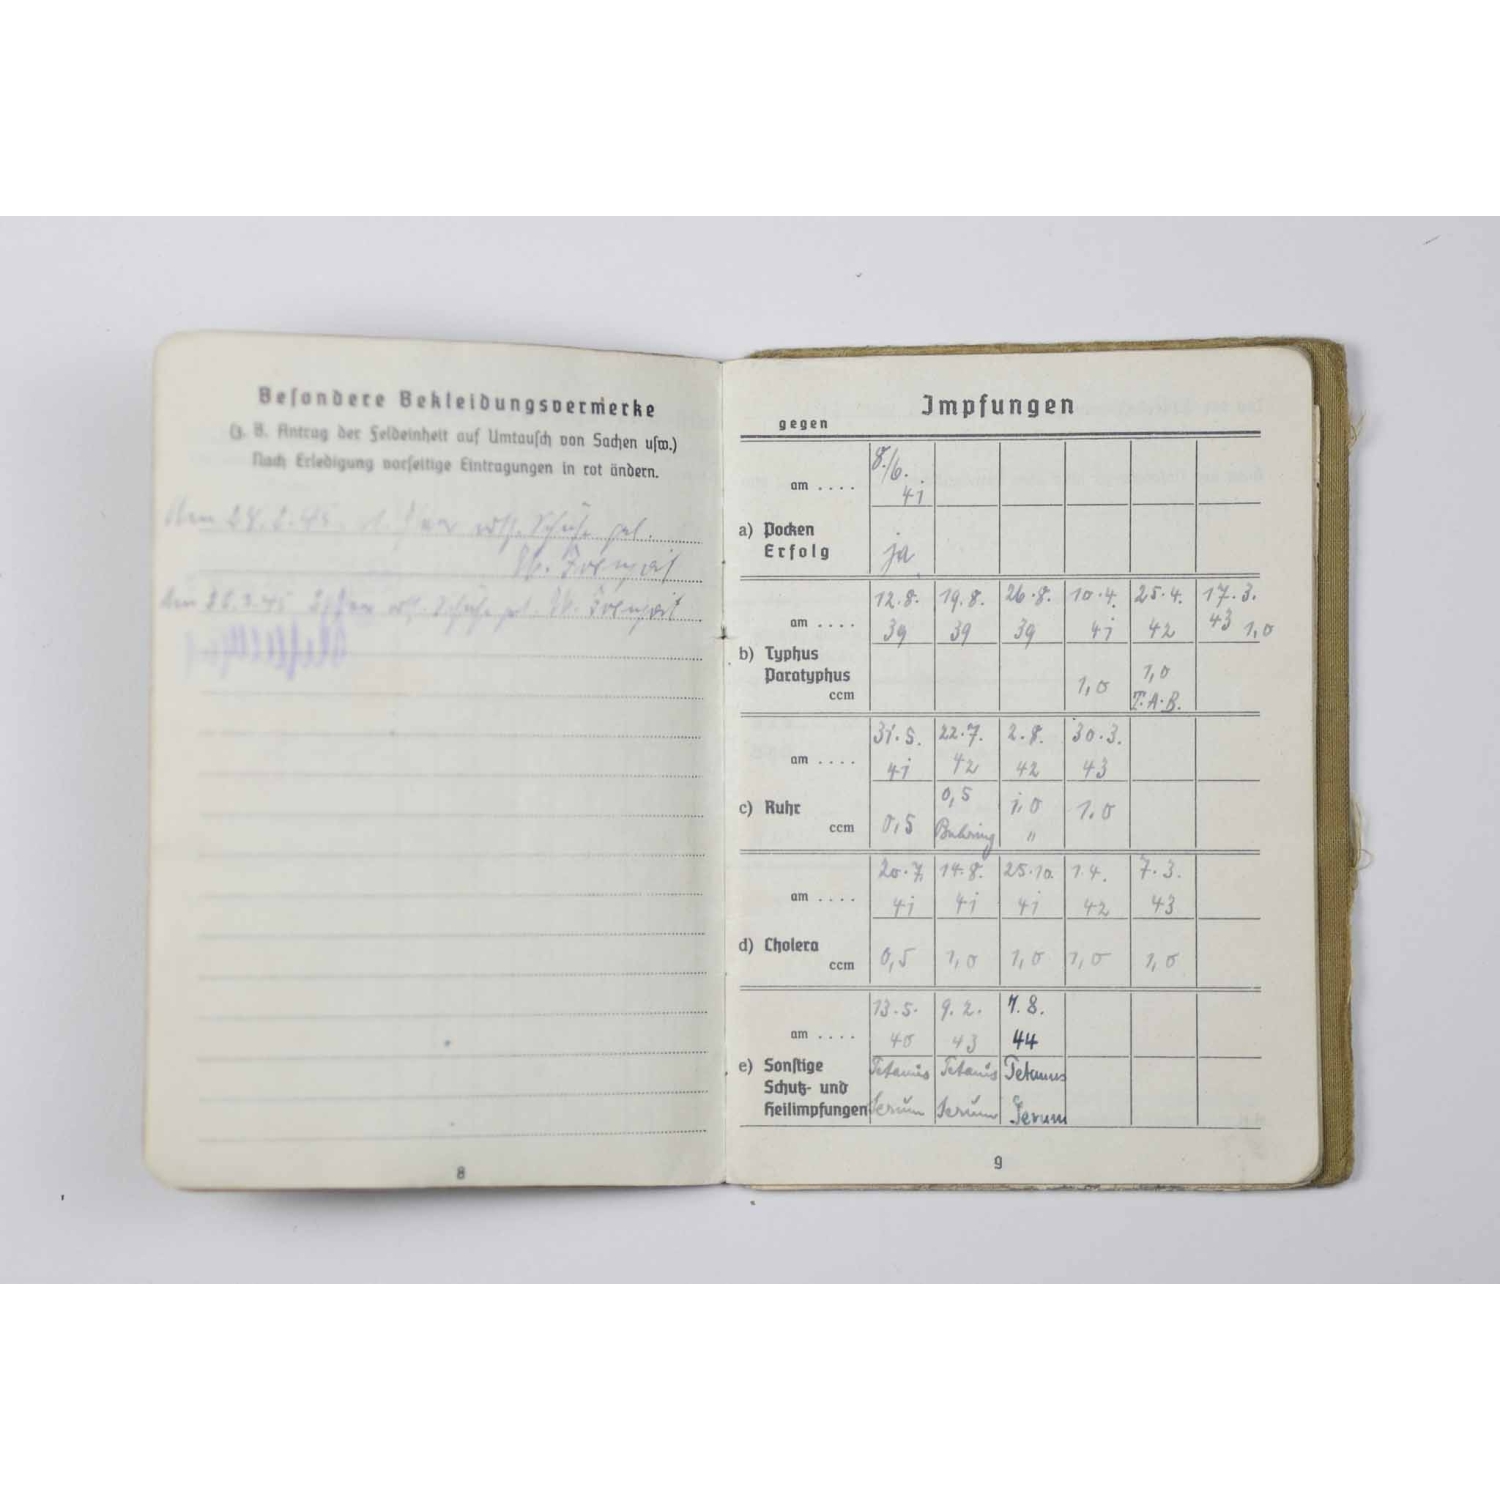 Besondere Bekleidungsvermerke
(z. B. Antrag der Feldeinheit auf Umtausch von Sachen usw.)
Nach Erledigung vorseitige Eintragungen in rot ändern.
den 28.2.45
den 22.3.45
8
Impfungen
gegen
am .... 8./6. 41
a) Pocken
Erfolg ja
am .... 12.8. 39 19.8. 39 26.8. 39 10.4. 41 25.4. 42 17.3. 43 1,0
b) Typhus
Paratyphus
ccm 1,0 1,0 T.A.B.
am .... 31.5. 41 22.7. 42 2.8. 42 30.3. 43
c) Ruhr
ccm 0,5 0,5 Behring 1,0 " 1,0
am .... 20.7. 41 14.8. 41 25.10. 41 1.4. 42 7.3. 43
d) Cholera
ccm 0,5 1,0 1,0 1,0 1,0
am .... 13.5. 40 9.2. 43 7.8. 44
e) Sonstige Tetanus Tetanus Tetanus
Schutz- und
Heilimpfungen Serum Serum Serum
9